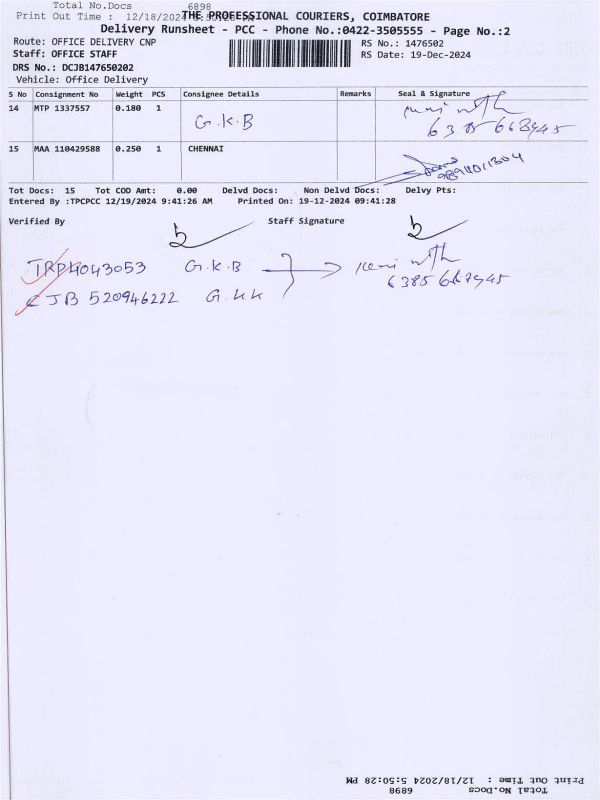 Total No.Docs 6898
Print Out Time : 12/18/2024
THE PROFESSIONAL COURIERS, COIMBATORE
Delivery Runsheet - PCC - Phone No.:0422-3505555 - Page No.:2
Route: OFFICE DELIVERY CNP
RS No.: 1476502
Staff: OFFICE STAFF
RS Date: 19-Dec-2024
DRS No.: DCJB147650202
Vehicle: Office Delivery
S No Consignment No Weight PCS Consignee Details Remarks Seal & Signature
14 MTP 1337557 0.180 1 G.K.B
15 MAA 110429588 0.250 1 CHENNAI
Tot Docs: 15 Tot COD Amt: 0.00 Delvd Docs: Non Delvd Docs: Delvy Pts:
Entered By :TPCPCC 12/19/2024 9:41:26 AM Printed On: 19-12-2024 09:41:28
Verified By Staff Signature
TRP4043053 G.K.B
CJB 520946222 G.KK
Print Out Time : 12/18/2024 5:50:28 PM
Total No.Docs 6898